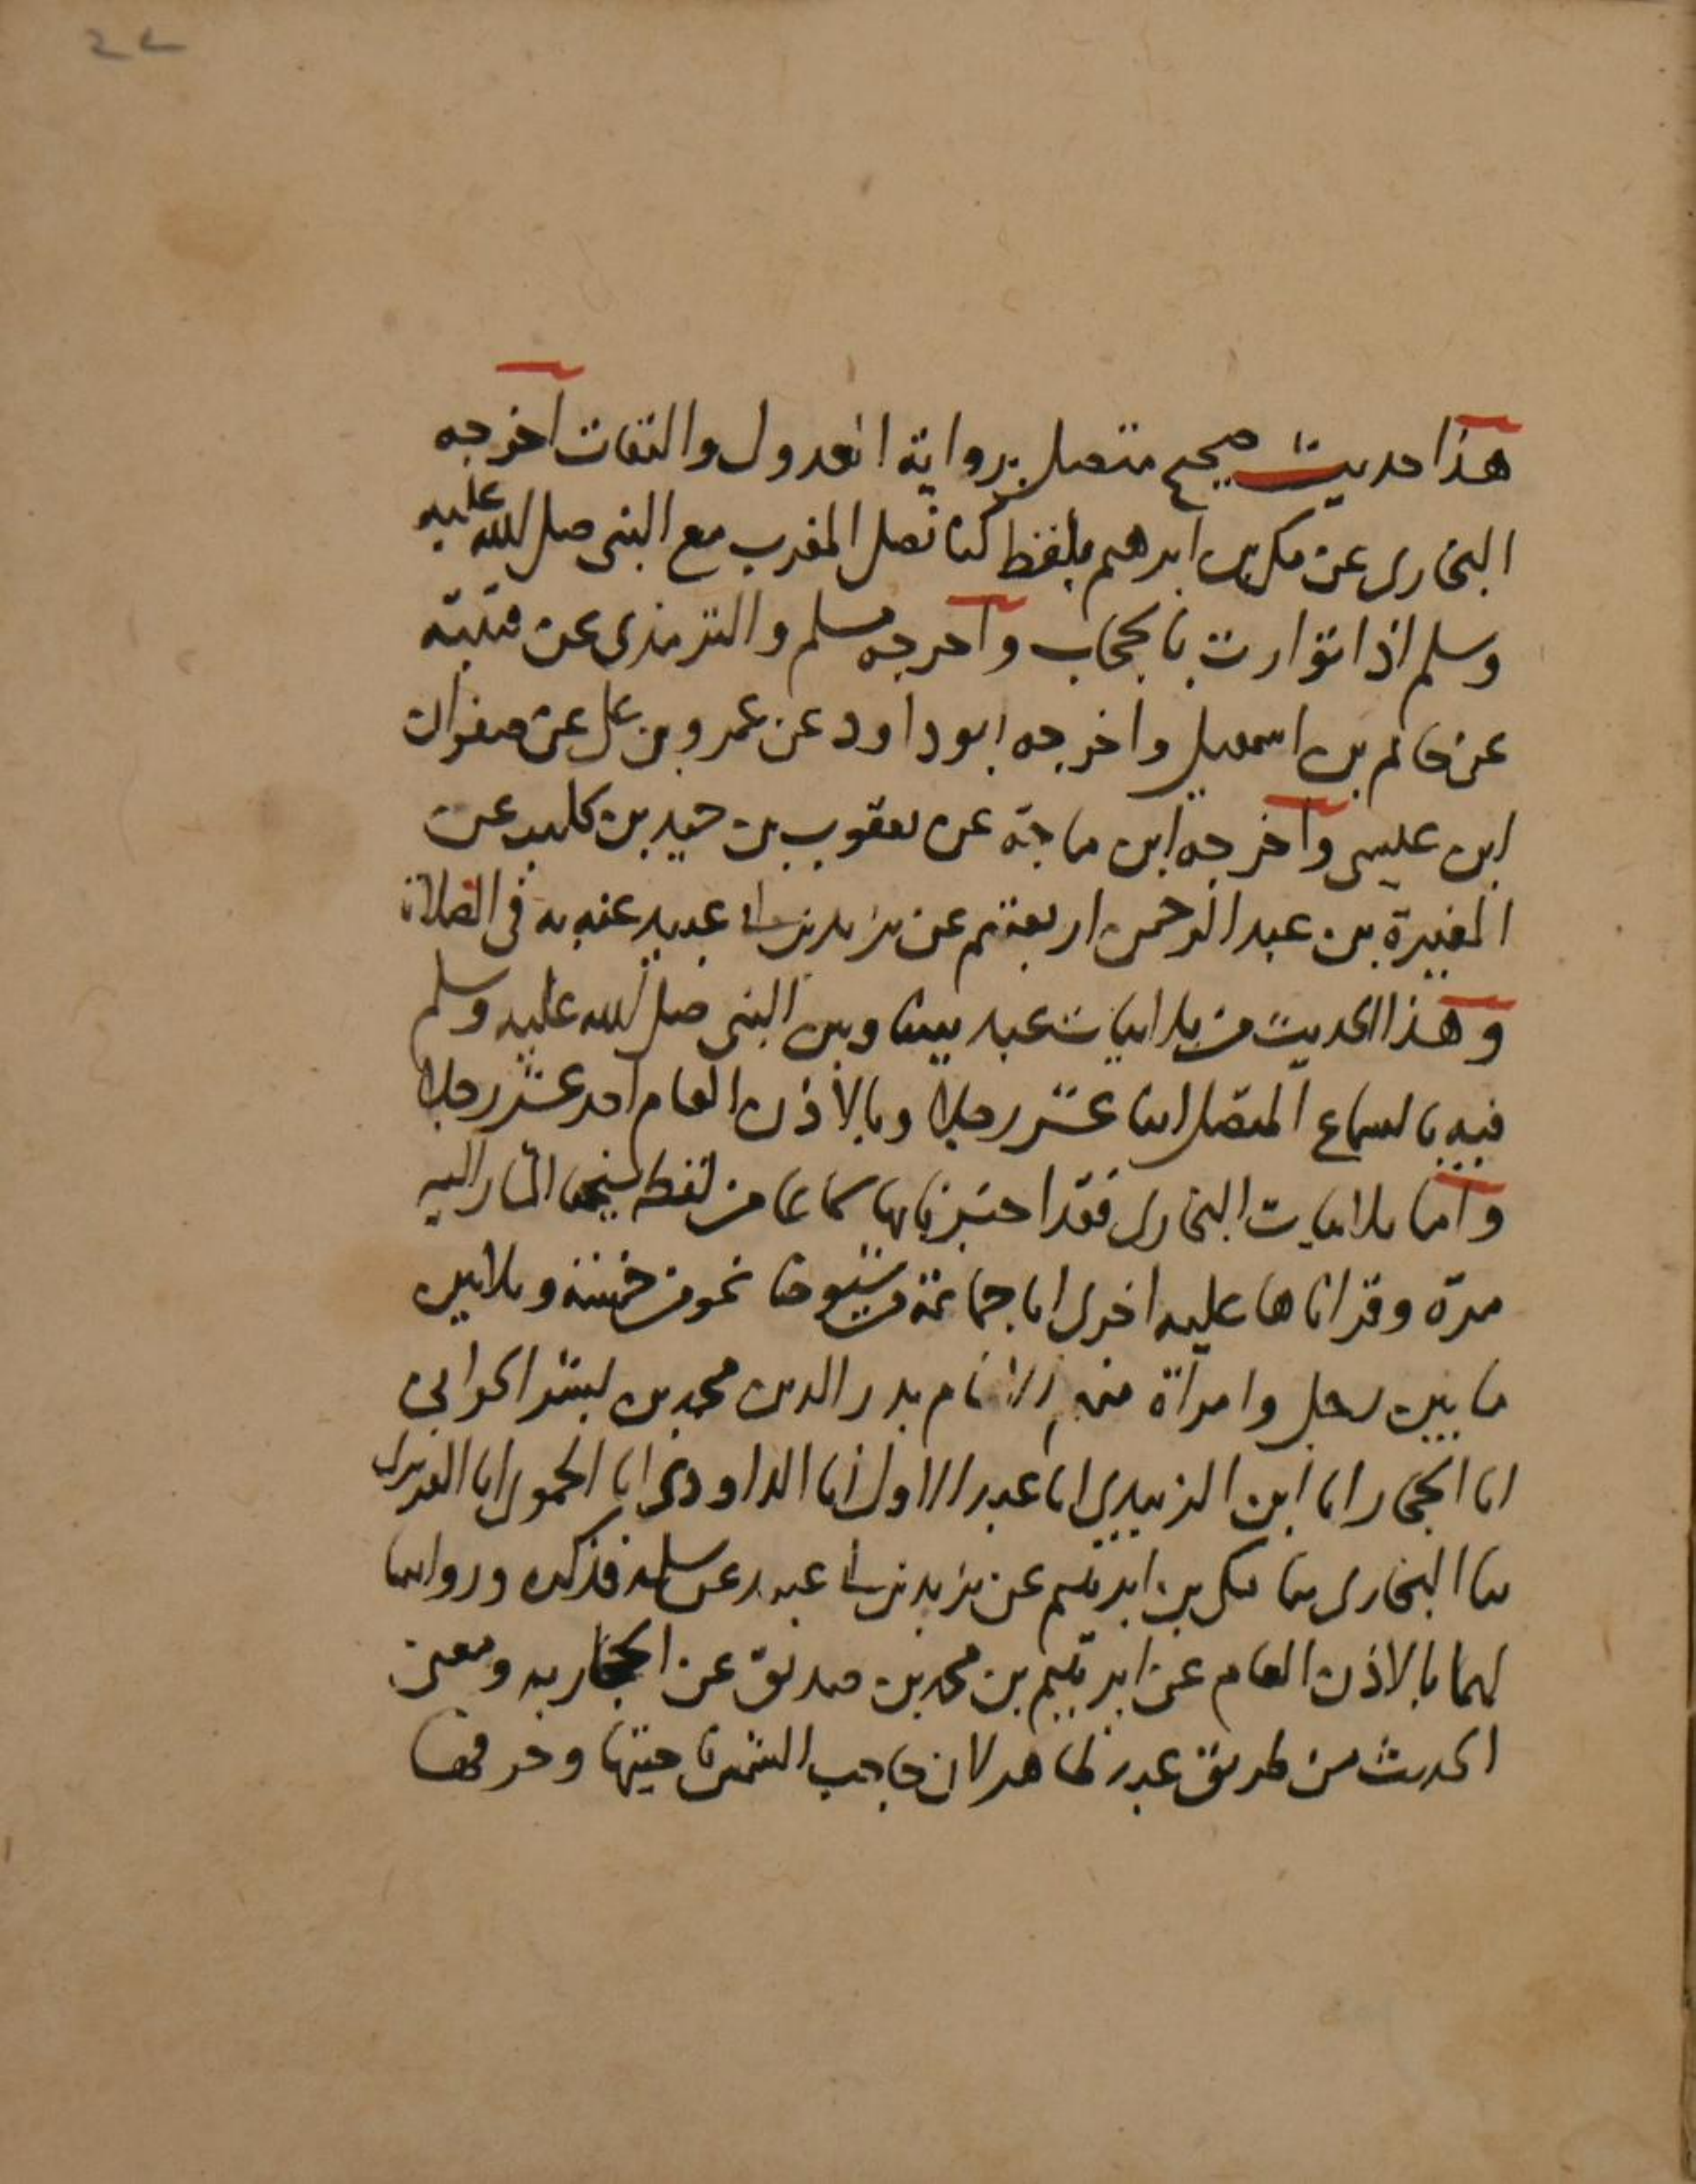 22
هذا حديث صحيح متصل برواية العدول والثقات اخرجه
البخاري عن مكي بن ابرهيم بلفظ كنا نصلى المغرب مع النبي صلى الله عليه
وسلم اذا توارت بالحجاب وأخرجه مسلم والترمذي عن قتيبة
عن حاتم بن اسمعيل واخرجه ابو داود عن عمرو بن على عن صفوان
ابن عيسى وأخرجه ابن ماجة عن يعقوب بن حميد بن كاسب عن
المغيرة بن عبد الرحمن اربعتهم عن يزيد بن ابى عبيد عنه به في الصلاة
وهذا الحديث من ثلاثيات عبد بيننا وبين النبي صلى الله عليه وسلم
فيه بالسماع المتصل اثنا عشر رجلا وبالاذن العام احد عشر رجلا
وأما ثلاثيات البخاري فقد اخبرنا بها سماعا من لفظه شيخنا المشار اليه
مرة وقراناها عليه اخرى انا جماعة من شيوخنا نحو من خمسة وثلاثين
ما بين رجل وامرأة منهم الامام بدر الدين محمد بن بشر الحراني
انا الحجار انا ابن الزبيدي انا عبد الاول انا الداودي انا الحموي انا الفربري
ثنا البخاري ثنا مكي بن ابرهيم عن يزيد بن ابى عبيد عن سلمة فذكره وروايتنا
لهما بالاذن العام عن ابرهيم بن محمد بن صديق عن الحجار به ومعنى
الحديث من طريق عبد ظاهر لان حاجب الشمس حيتها وحرفها